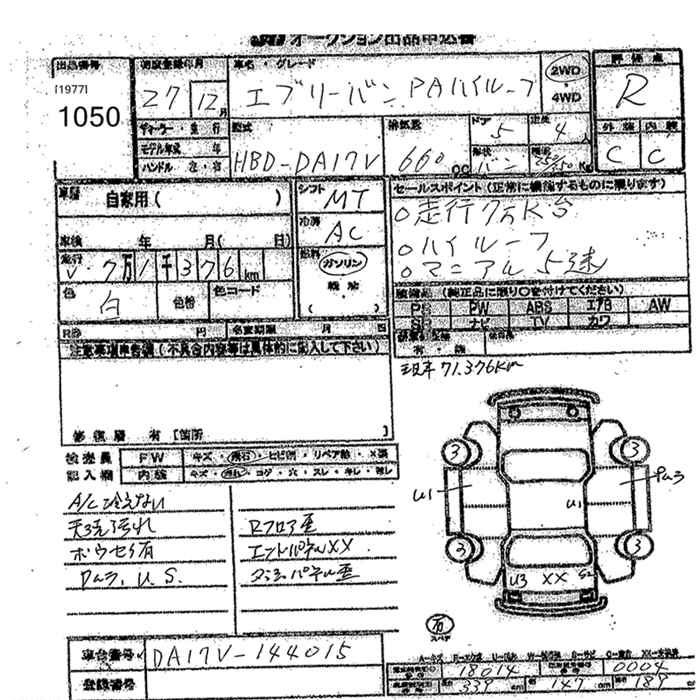 オークション出品申込書
出品番号
[1977]
1050
初度登録年月
27 12月
車名・グレード
エブリーバン PAハイルーフ
2WD
・
4WD
評価点
R
外装 内装
C C
ディーラー・並行
モデル年式 年
ハンドル 左・右
型式
HBD-DA17V
排気量
660cc
ドア
5
形状
バン
定員
4人
積載
250/350Kg
車歴
自家用( )
車検 年 月( 日)
走行
7万1千376km
色
白
色替
色コード
シフト
MT
冷房
AC
燃料
ガソリン
軽油
( )
セールスポイント(正常に機能するものに限ります)
○走行7万K台
○ハイルーフ
○マニアル5速
装備品(純正品に限り○を付けてください)
PS PW ABS エアB AW
SR ナビ TV カワ
有・無
R券 円
名変期限 月 日
注意事項申告欄(不具合内容等は具体的に記入して下さい)
修復歴 有 [箇所 ]
現車71.376Km
検査員
記入欄
FW
キズ・飛石・ヒビ割・リペア跡・X要
内装
キズ・汚れ・コゲ・穴・スレ・キレ・無レ
A/C冷えない
天張汚れ
ボウセイ有
ワムラ、U、S.
Rフロア歪
エンドパネルXX
3 3
U1
ワムラ
U1
3 3
U3 XX S2
スペア
車台番号
DA17V-144015
登録番号
18014
0004
339cm
147cm
189cm